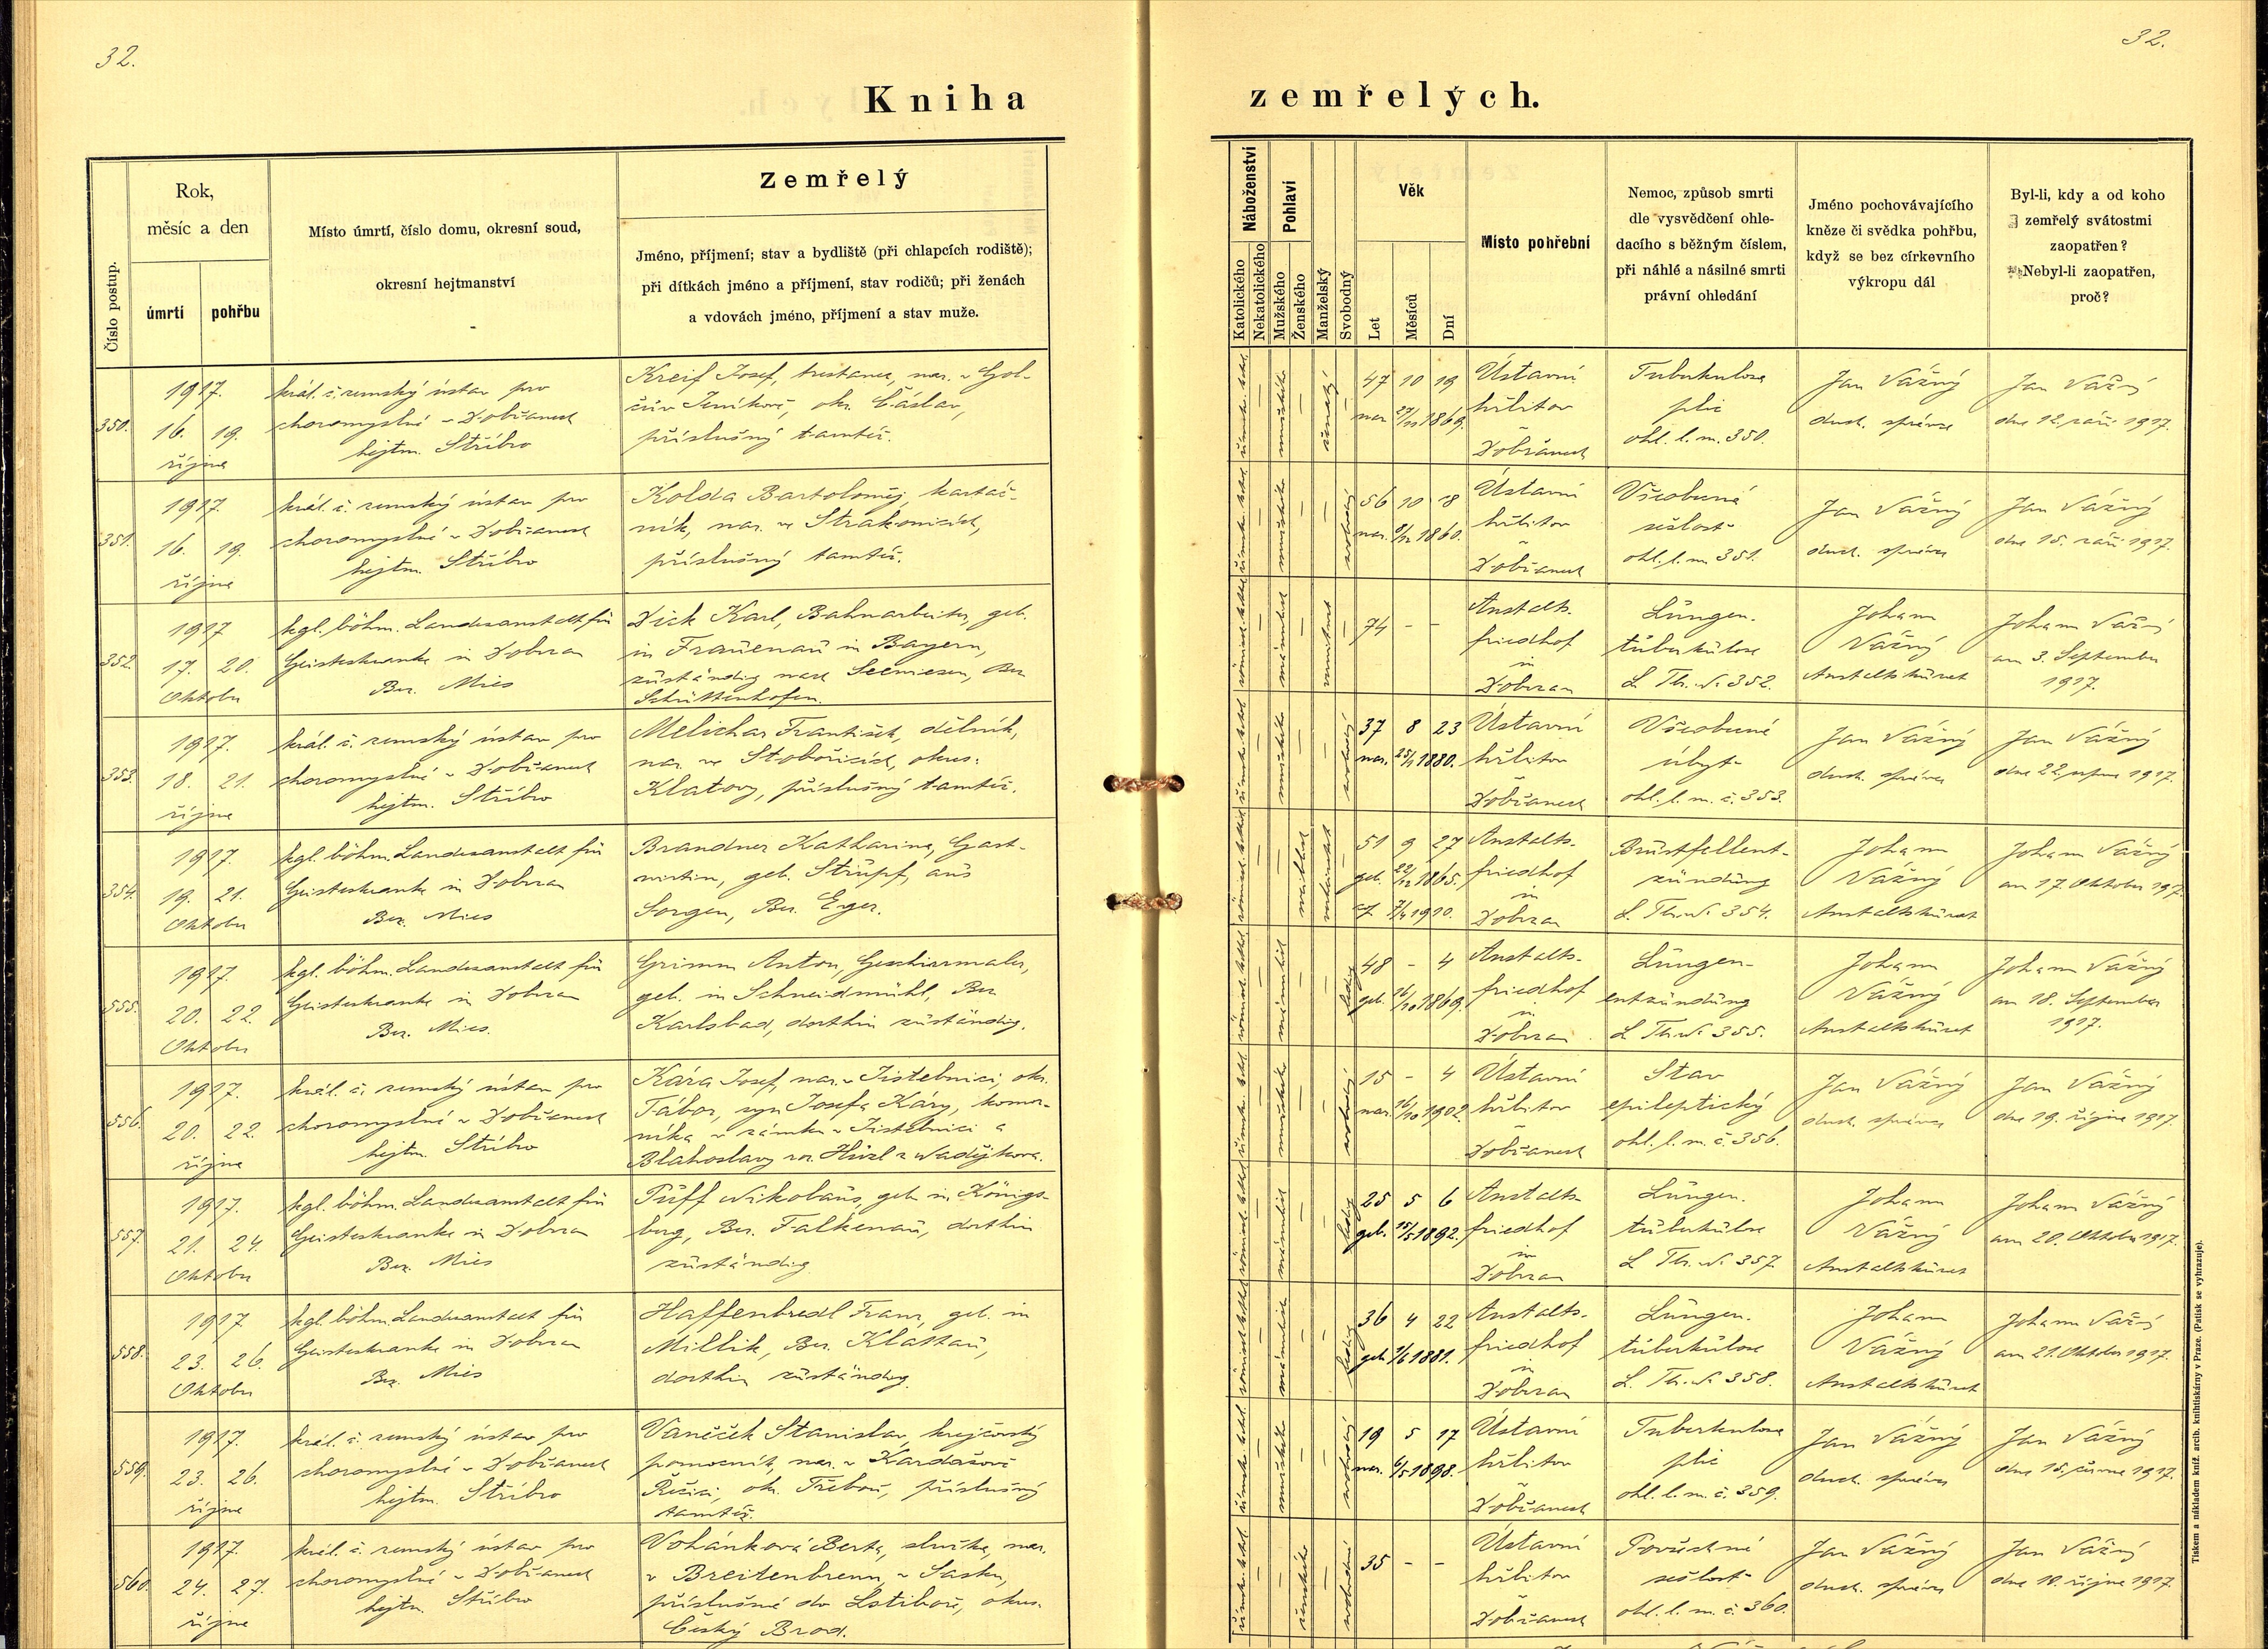 32.
32.
Kniha zemřelých.
Číslo postup.
Rok,
měsíc a den
úmrtí
pohřbu
Místo úmrtí, číslo domu, okresní soud,
okresní hejtmanství
Zemřelý
Jméno, příjmení; stav a bydliště (při chlapcích rodiště);
při dítkách jméno a příjmení, stav rodičů; při ženách
a vdovách jméno, příjmení a stav muže.
Náboženství
Katolického
Nekatolického
Pohlaví
Mužského
Ženského
Manželský
Svobodný
Věk
Let
Měsíců
Dní
Místo pohřební
Nemoc, způsob smrti
dle vysvědčení ohle-
dacího s běžným číslem,
při náhlé a násilné smrti
právní ohledání
Jméno pochovávajícího
kněze či svědka pohřbu,
když se bez církevního
výkropu dál
Byl-li, kdy a od koho
zemřelý svátostmi
zaopatřen?
Nebyl-li zaopatřen,
proč?
350.
1917.
16. 19.
října
král. č. zemský ústav pro
choromyslné v Dobřanech
hejtm. Stříbro
Kreif Josef, trestanec, nar. v Gol-
čův Jeníkově, okr. Čáslav,
příslušný tamtéž.
ženatý
47 10 19
nar. 27/11 1869.
Ústavní
hřbitov
v
Dobřanech
Tuberkulosa
plic
ohl. l. m. 350.
Jan Vážný
duch. správce
Jan Vážný
dne 12. září 1917.
351.
1917.
16. 19.
října
král. č. zemský ústav pro
choromyslné v Dobřanech
hejtm. Stříbro
Kolda Bartoloměj, kartáč-
ník, nar. ve Strakonicích,
příslušný tamtéž.
svobodný
56 10 18
1860.
Ústavní
hřbitov
v
Dobřanech
Všeobecná
sešlost
ohl. l. m. 351.
Jan Vážný
duch. správce
Jan Vážný
dne 15. září 1917.
352.
1917
17. 20.
Oktober
kgl. böhm. Landesanstalt für
Geisteskranke in Dobrzan
Bez. Mies
Dick Karl, Bahnarbeiter, geb.
in Frauenau in Bayern,
zuständig nach Seewiesen, Bez
Schüttenhofen.
verwitwet
74 - -
Anstalts-
friedhof
in
Dobrzan
Lungen-
tuberkulose
L. Th. N. 352.
Johann
Vážný
Anstaltskurat
Johann Vážný
am 3. September
1917.
353.
1917.
18. 21.
října
král. č. zemský ústav pro
choromyslné v Dobřanech
hejtm. Stříbro
Melichar František, dělník,
nar. ve Stobořicích, okres:
Klatovy, příslušný tamtéž.
svobodný
37 8 23
nar. 25/1 1880.
Ústavní
hřbitov
v
Dobřanech
Všeobecné
úbytě
ohl. l. m. č. 353.
Jan Vážný
duch. správce
Jan Vážný
dne 22. srpna 1917.
354.
1917.
19. 21.
Oktober
kgl. böhm. Landesanstalt für
Geisteskranke in Dobrzan
Bez. Mies
Brandner Katharina, Gast-
wirtin, geb. Strupf, aus
Sorgen, Bez. Eger.
weiblich
verheiratet
51 9 27
geb. 22/12 1865.
7/4 1910.
Anstalts-
friedhof
in
Dobrzan
Brustfellent-
zündung
L. Th. N. 354.
Johann
Vážný
Anstaltskurat
Johann Vážný
am 17. Oktober 1917.
555.
1917.
20. 22.
Oktober
kgl. böhm. Landesanstalt für
Geisteskranke in Dobrzan
Bez. Mies.
Grimm Anton, Geschirrmaler,
geb. in Schneidmühl, Bez
Karlsbad, dorthin zuständig.
ledig
48 - 4
geb. 16/10 1869.
Anstalts-
friedhof
in
Dobrzan
Lungen-
entzündung
L Th. N. 355.
Johann
Vážný
Anstaltskurat
Johann Vážný
am 18. September
1917.
556.
1917.
20. 22.
října
král. č. zemský ústav pro
choromyslné v Dobřanech
hejtm. Stříbro
Kára Josef, nar. v Jistebnici, okr.
Tábor, syn Josefa Káry, komor-
níka v zámku v Jistebnici a
Blahoslavy roz.
svobodný
15 - 4
nar. 16/10 1902.
Ústavní
hřbitov
v
Dobřanech
Stav
epileptický
ohl. l. m. č. 356.
Jan Vážný
duch. správce
Jan Vážný
dne 19. října 1917.
557.
1917.
21. 24.
Oktober
kgl. böhm. Landesanstalt für
Geisteskranke in Dobrzan
Bez. Mies
Puff Nikolaus, geb. in Königs-
berg, Bez. Falkenau, dorthin
zuständig
ledig
25 5 6
geb. 15/5 1892.
Anstalts-
friedhof
in
Dobrzan
Lungen-
tuberkulose
L Th. N. 357.
Johann
Vážný
Anstaltskurat
Johann Vážný
am 20. Oktober 1917.
558.
1917
23. 26.
Oktober
kgl. böhm. Landesanstalt für
Geisteskranke in Dobrzan
Bez. Mies
Haffenbredl Franz, geb. in
Millik, Bez. Klattau,
dorthin zuständig.
ledig
36 4 22
geb. 1/6 1881.
Anstalts-
friedhof
in
Dobrzan
Lungen-
tuberkulose
L. Th. N. 358.
Johann
Vážný
Anstaltskurat
Johann Vážný
am 21. Oktober 1917.
559.
1917.
23. 26.
října
král. č. zemský ústav pro
choromyslné v Dobřanech
hejtm. Stříbro
Vaněček Stanislav, krejčovský
pomocník, nar. v Kardašově
Řečici, okr. Třeboň, příslušný
tamtéž.
svobodný
19 5 17
nar. 6/5 1898.
Ústavní
hřbitov
v
Dobřanech
Tuberkulosa
plic
ohl. l. m. č. 359.
Jan Vážný
duch. správce
Jan Vážný
dne 15. června 1917.
560.
1917.
24. 27.
října
král. č. zemský ústav pro
choromyslné v Dobřanech
hejtm. Stříbro
Vohánková Berta, služka, nar.
v Breitenbrenn v Sasku,
příslušná do Lstiboře, okres.
Český Brod.
ženského
svobodná
35 - -
Ústavní
hřbitov
v
Dobřanech
sešlost
ohl. l. m. č. 360.
Jan Vážný
duch. správce
Jan Vážný
dne 10. října 1917.
Tiskem a nákladem kníž. arcib. knihtiskárny v Praze. (Patisk se vyhrazuje).